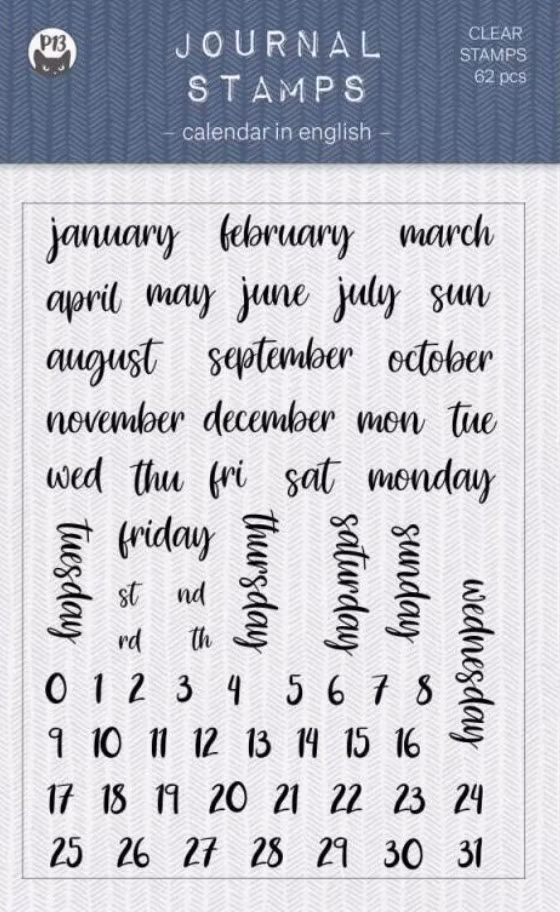 P13
JOURNAL
STAMPS
– calendar in english –
CLEAR
STAMPS
62 pcs
january february march
april may june july sun
august september october
november december mon tue
wed thu fri sat monday
tuesday friday thursday saturday sunday wednesday
st nd
rd th
0 1 2 3 4 5 6 7 8
9 10 11 12 13 14 15 16
17 18 19 20 21 22 23 24
25 26 27 28 29 30 31